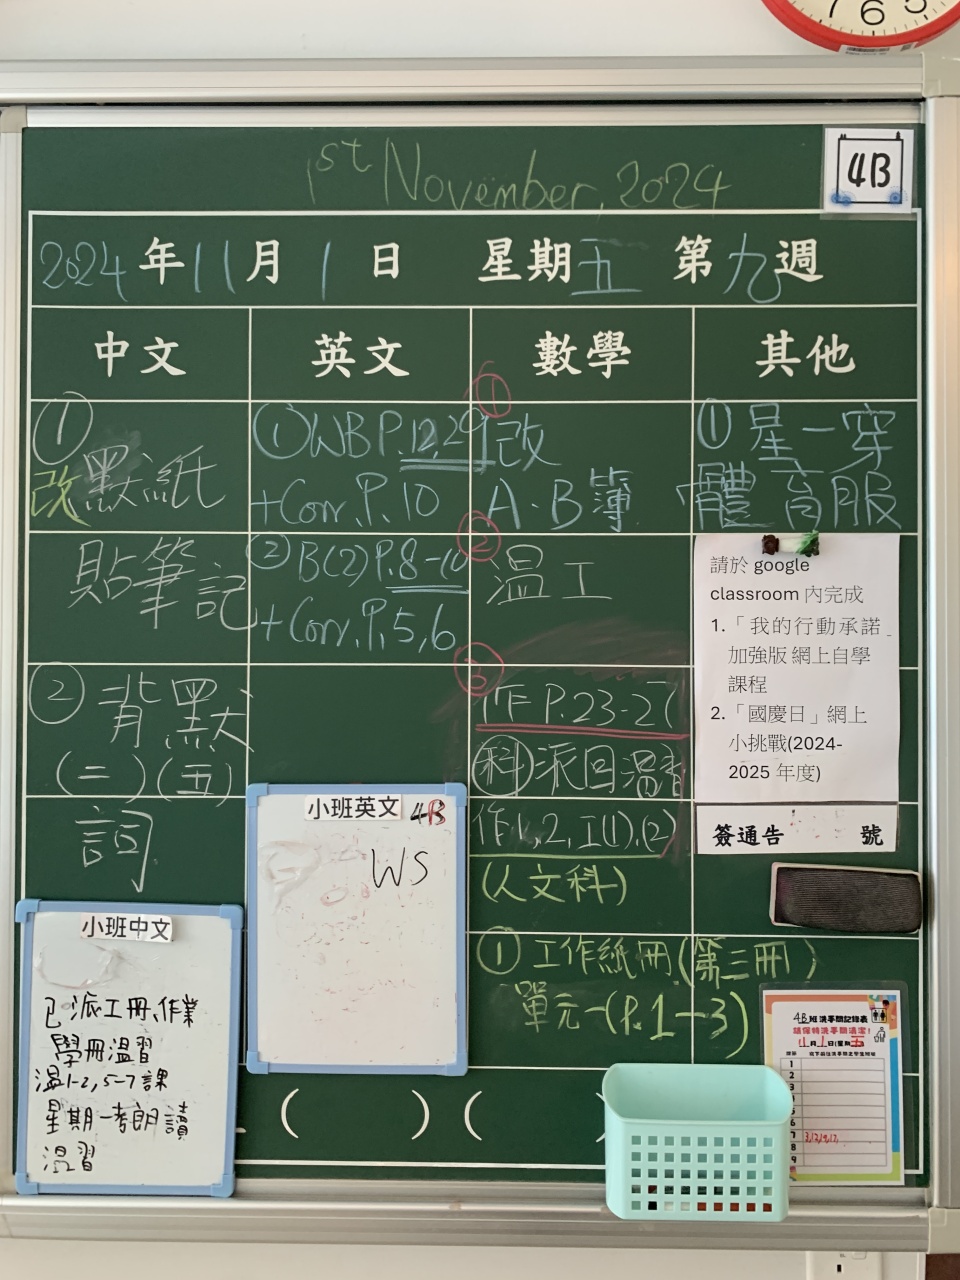 7 6 5
1st November, 2024
4B
2024年11月1日 星期五 第九週
中文 英文 數學 其他
①
改默紙
貼筆記
② 背默
(二)(五)
詞
①WB P.12,29
+Corr. P.10
② B(2) P.8-10
+Corr. P.5,6
① 改
A.B簿
② 溫工
③ 作 P.23-27
科 派回溫習
作1,2,工(1),(2)
(人文科)
① 工作紙冊(第三冊)
單元一(P.1-3)
①星一穿
體育服
請於 google
classroom 內完成
1.「我的行動承諾_
加強版 網上自學
課程
2.「國慶日」網上
小挑戰(2024-
2025 年度)
簽通告 號
小班英文 4B
WS
小班中文
已派工冊、作業
學冊溫習
溫1-2,5-7課
星期一考朗讀
溫習
( ) ( )
4B班洗手間記錄表
請保持洗手間清潔!
11月1日(星期五)
1
2
3
4
5
6
7
8
9